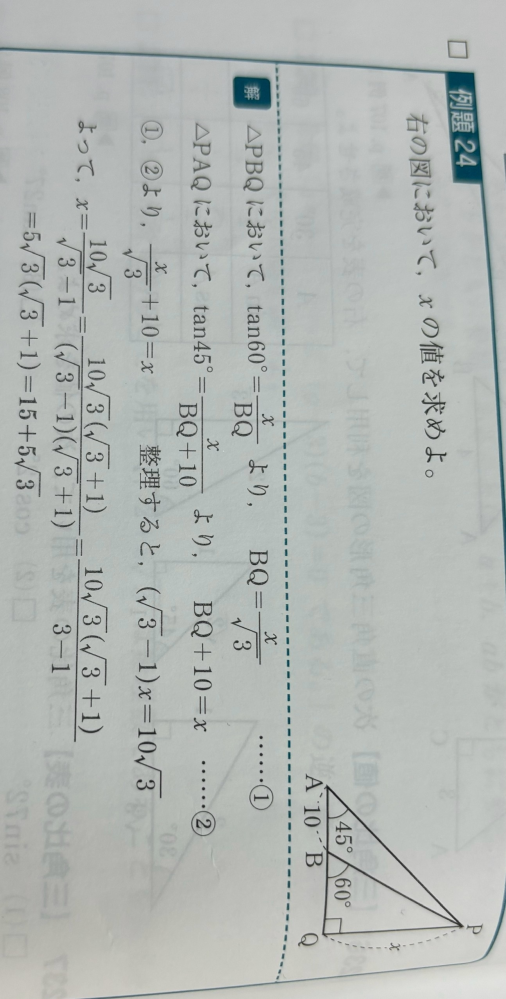 例題 24
右の図において，xの値を求めよ。
P
45°
60°
x
A
10
B
Q
解 △PBQにおいて，tan60°=x/BQ より， BQ=x/√3 ……①
△PAQにおいて，tan45°=x/(BQ+10) より， BQ+10=x ……②
①，②より，x/√3+10=x 整理すると，(√3−1)x=10√3
よって，x=10√3/(√3−1)=10√3(√3+1)/((√3−1)(√3+1))=10√3(√3+1)/(3−1)
=5√3(√3+1)=15+5√3